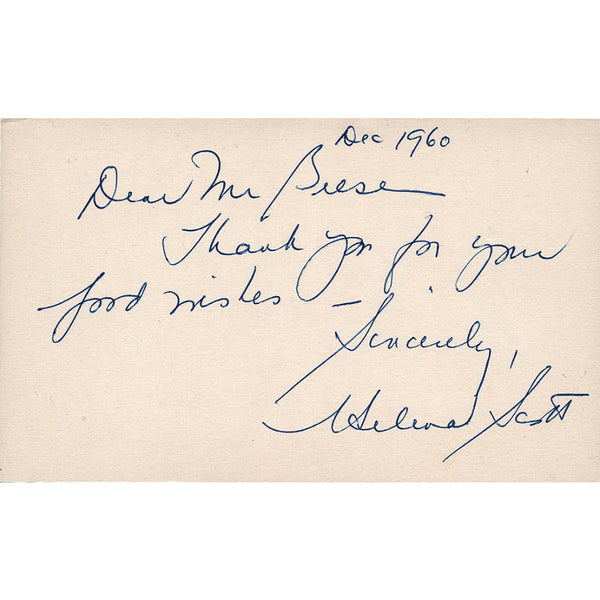 Dec 1960
Dear Mr Beese
Thank you for your
good wishes –
Sincerely,
Scott